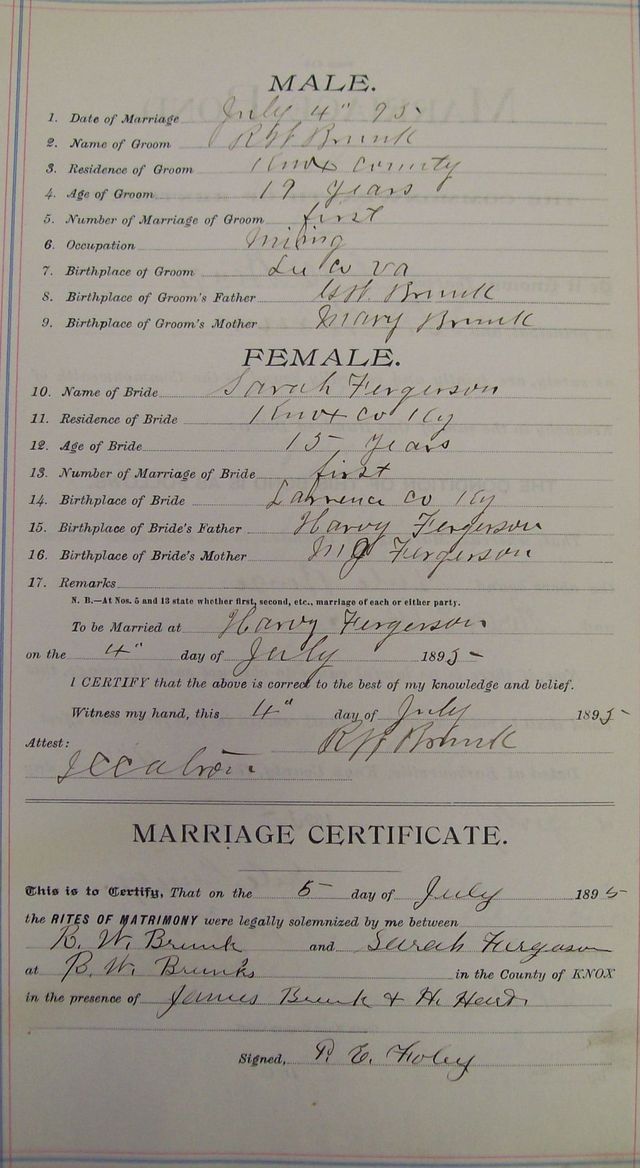 MALE.
1. Date of Marriage July 4" 95
2. Name of Groom RW Brunk
3. Residence of Groom Knox County
4. Age of Groom 19 years
5. Number of Marriage of Groom first
6. Occupation Mining
7. Birthplace of Groom Lee Co Va
8. Birthplace of Groom's Father Brunk
9. Birthplace of Groom's Mother Mary Brunk
FEMALE.
10. Name of Bride Sarah Fergerson
11. Residence of Bride Knox Co Ky
12. Age of Bride 15 years
13. Number of Marriage of Bride first
14. Birthplace of Bride Lawrence Co Ky
15. Birthplace of Bride's Father Harvy Fergerson
16. Birthplace of Bride's Mother MJ Fergerson
17. Remarks
N. B.—At Nos. 5 and 13 state whether first, second, etc., marriage of each or either party.
To be Married at Harvy Fergerson
on the 4" day of July 1895
I CERTIFY that the above is correct to the best of my knowledge and belief.
Witness my hand, this 4" day of July 1895
RW Brunk
Attest:
MARRIAGE CERTIFICATE.
This is to Certify, That on the 5 day of July 1895
the RITES OF MATRIMONY were legally solemnized by me between
R. W. Brunk and Sarah Fergason
at R. W. Brunks in the County of KNOX
in the presence of James Brunk & H.
Signed, P. E. Foley